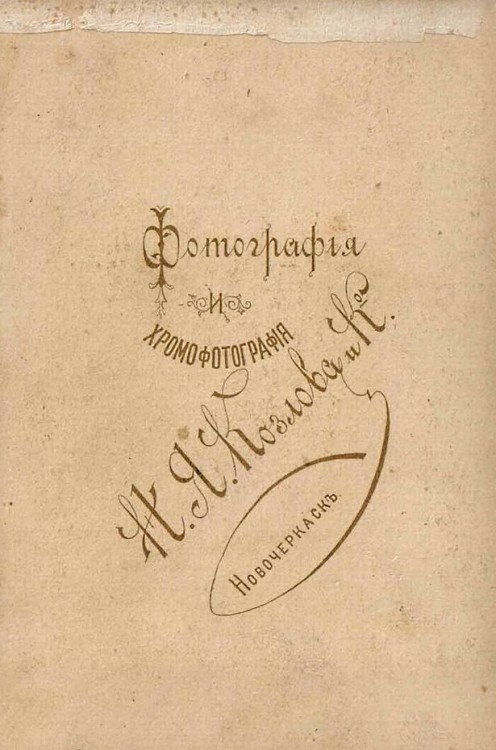 Фотографія
и
ХРОМОФОТОГРАФІЯ
Н. Я. Козлова и Ко.
Новочеркаскъ.